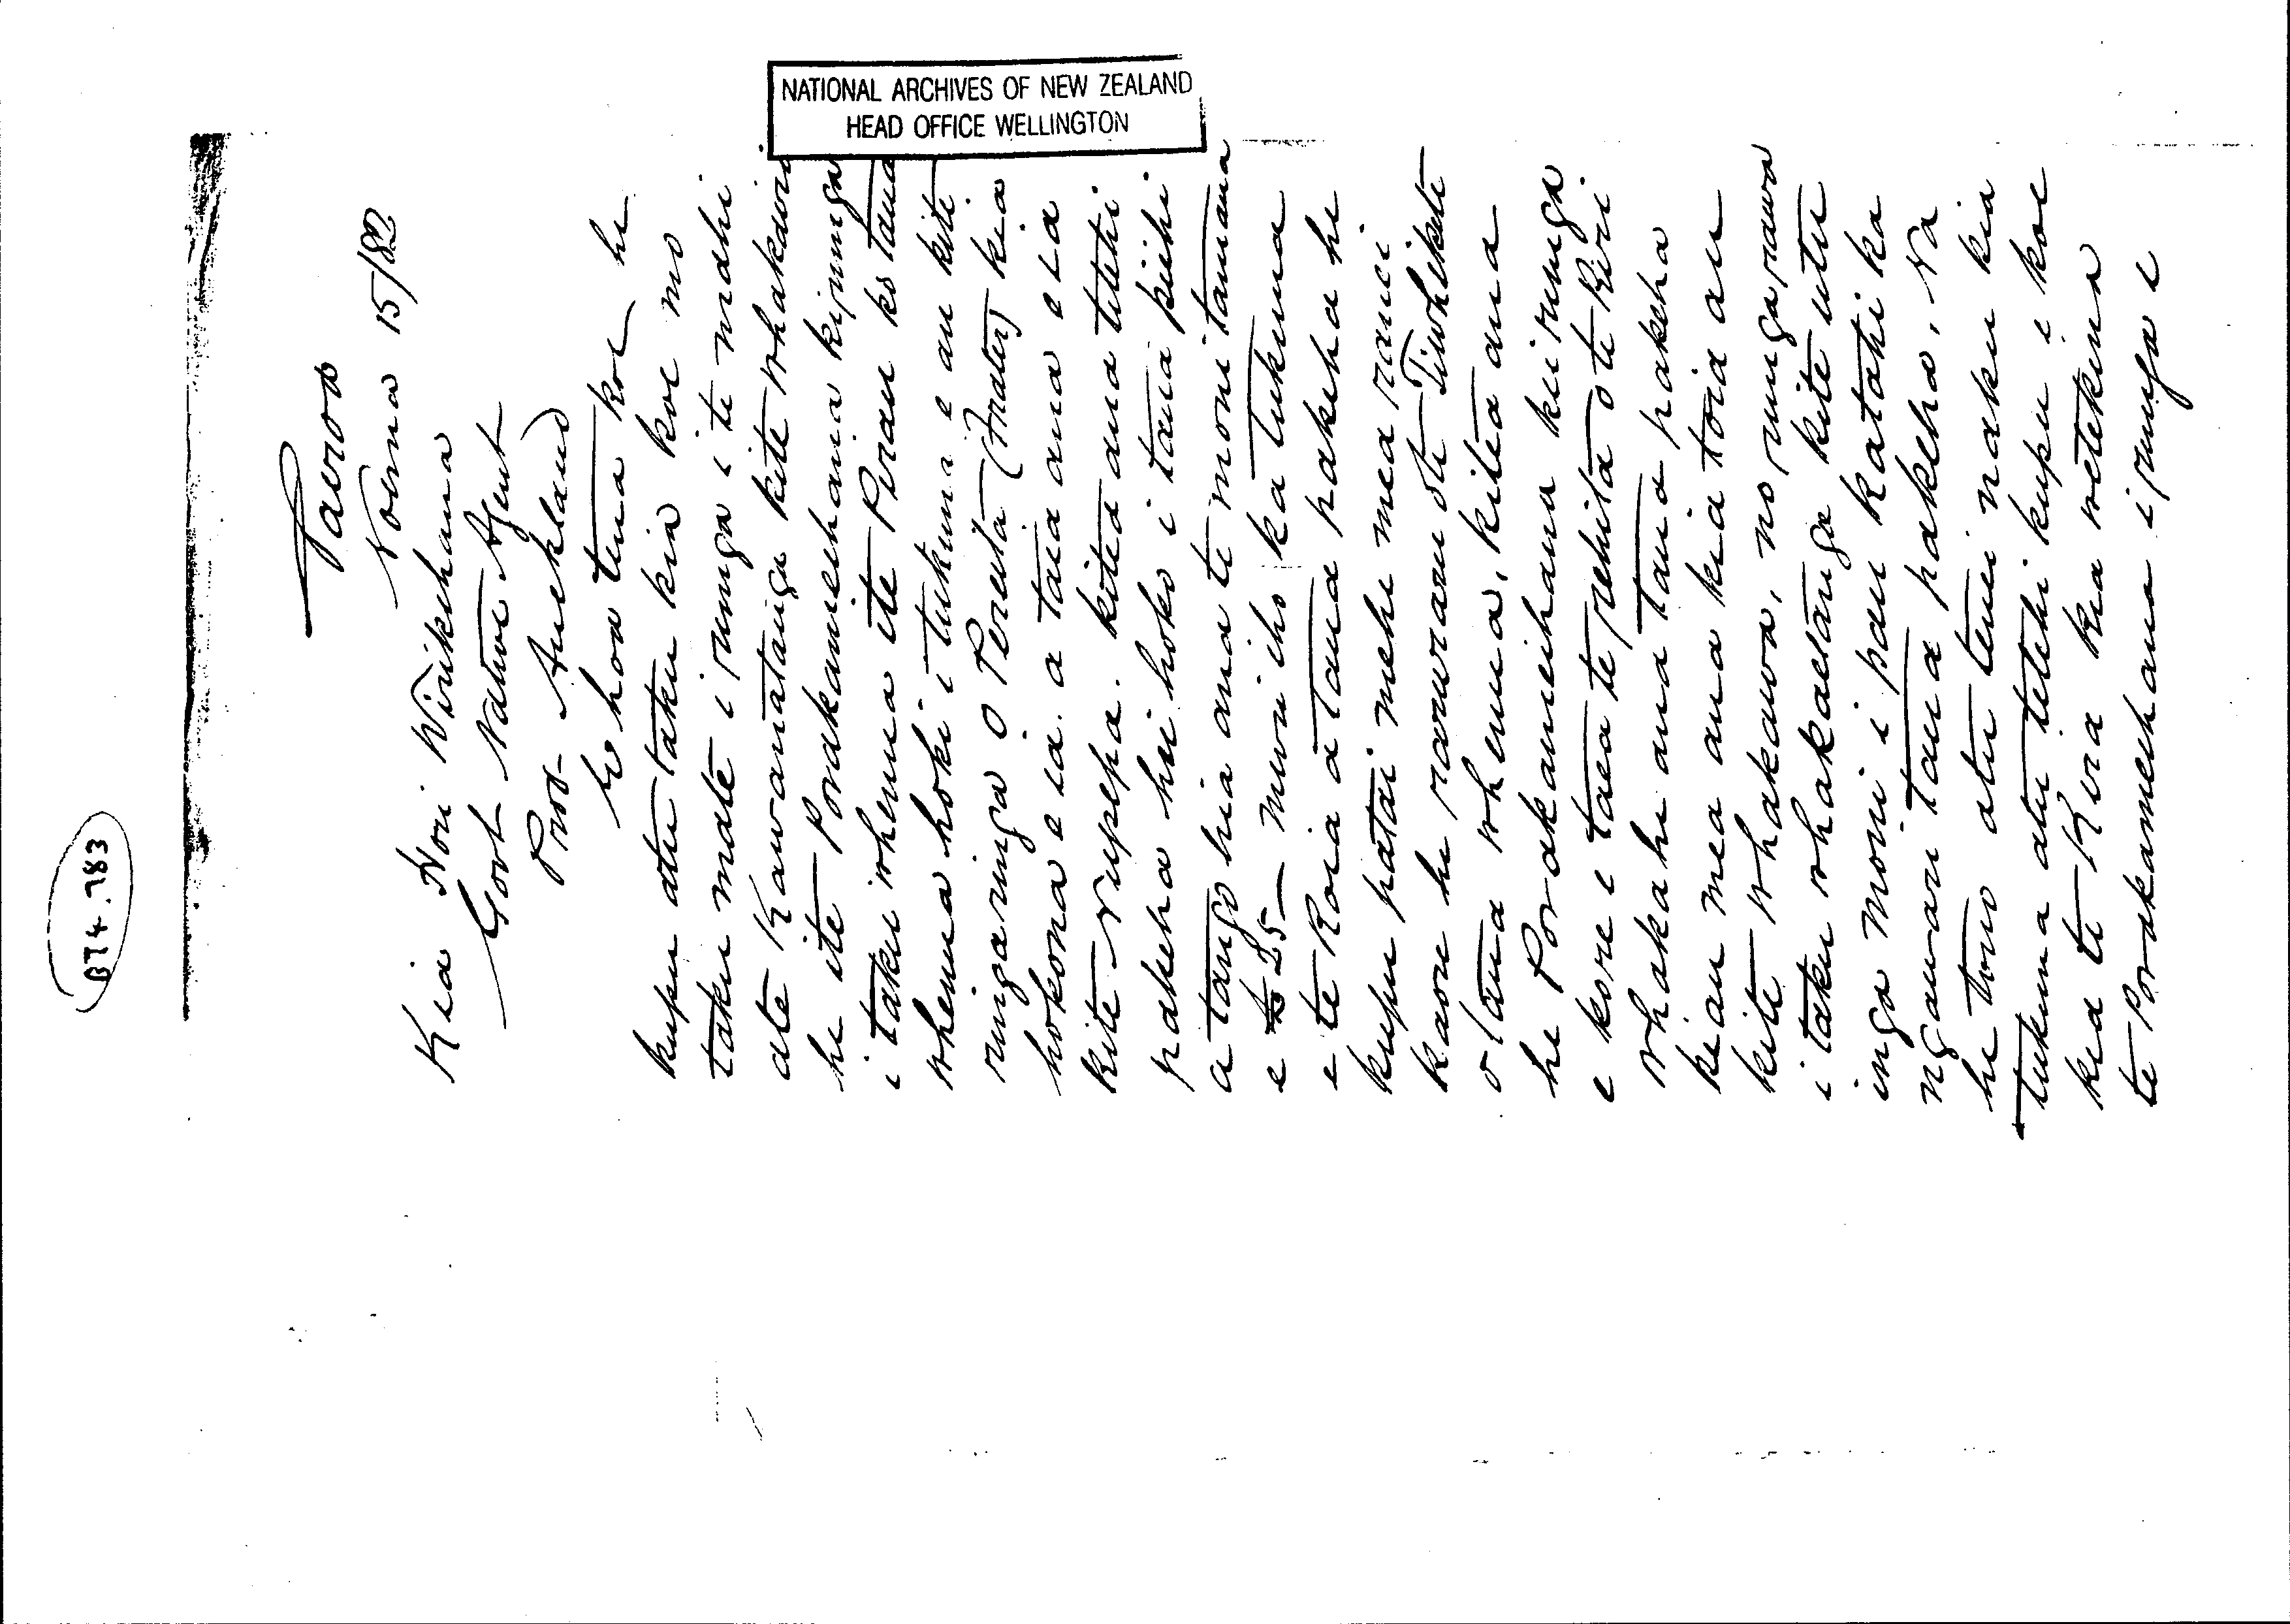 NATIONAL ARCHIVES OF NEW ZEALAND
HEAD OFFICE WELLINGTON
B74.783
Pavroa
Noema 15/82
Kia Hori Wirikihana
Govt Native Agent
Prov Auckland
E hoa tena koe he
kupu atu taku kia koe mo
taku mate i runga i te mahi
ate Kawanatanga kite whakawa
he ite Porokameihana kirunga
i taku whenua ite Pirau ko taua
whenua hoki i tukuna e au kite
ringaringa o Peruita (Frater) kia
hokona e ia. a taea ana e ia
kite rupepa. kitea ana tetehi
pakeha hei hoko i taua piihi
a tangohia ana te moni tamana
e £5 — muri iho ka tukuna
e te Roia a taua pakeha he
kupu patai mehe mea ranei
kaore he raruraru o te Tiwhikete
o taua whenua, kitea ana
he Porokameihana kei runga
e kore e taea te rehita o te Kiri
whakahe ana taua pakeha
keiau mea ana kia toia au
kite whakawa, no runga rawa
i taku whakaaetanga kite utu
inga moni i pau katahi ka
ngawari taua pakeha, Na
he tono atu tenei naku kia
tukuna atu tetehi kupu i koe
kia te Kira kia wetekina
te Porokameihana i runga i